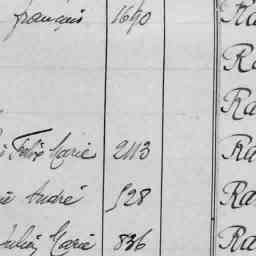 françois 1690 Ra
Ra
Ra
Félix Marie 2113 Ra
André 528 Ra
Julien Marie 836 Ra